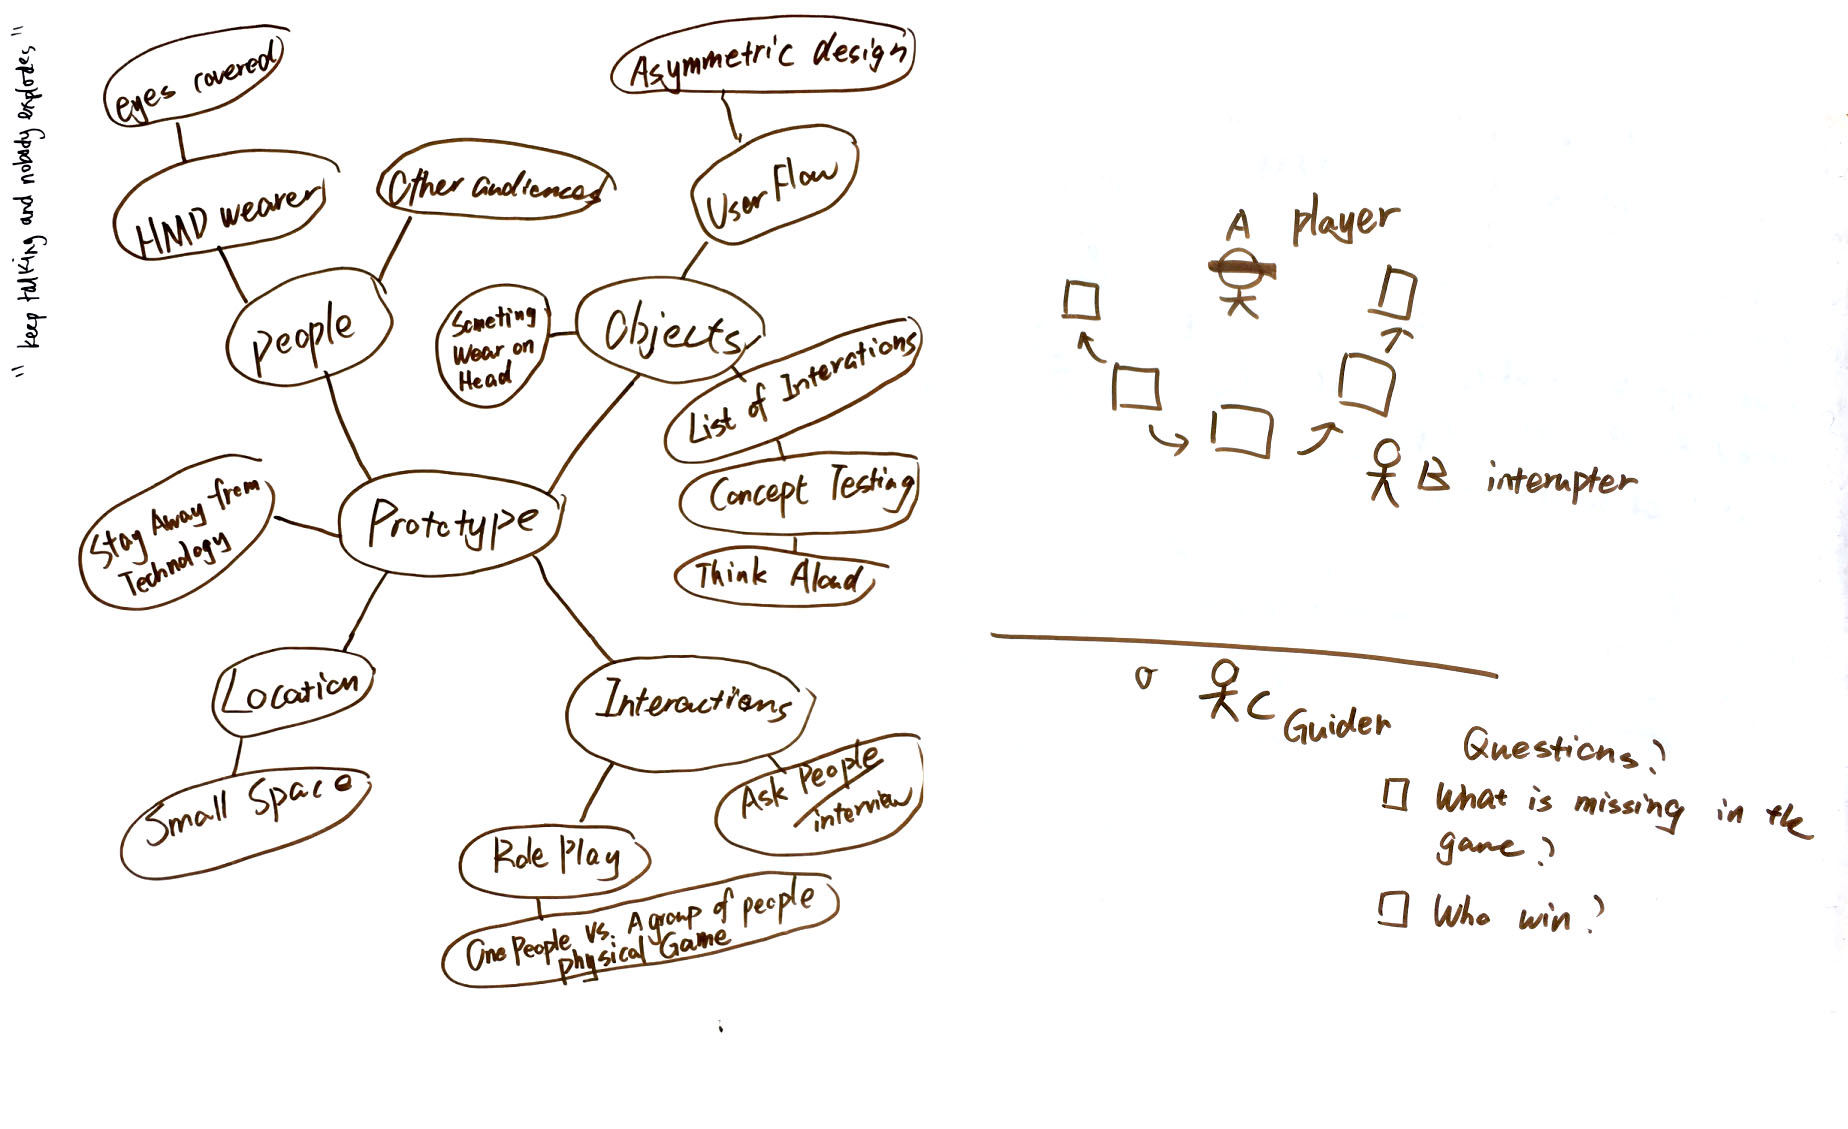 "keep talking and nobody explodes"
eyes covered
HMD wearer
Other audiences
people
Asymmetric design
User Flow
Objects
Someting
Wear on
Head
List of Interations
Concept Testing
Think Aloud
Prototype
Stay Away from
Technology
Location
Small Space
Interactions
Ask People
interview
Role Play
One People vs. A group of people
physical Game
A player
B interupter
C Guider
Questions?
What is missing in the
game?
Who win?